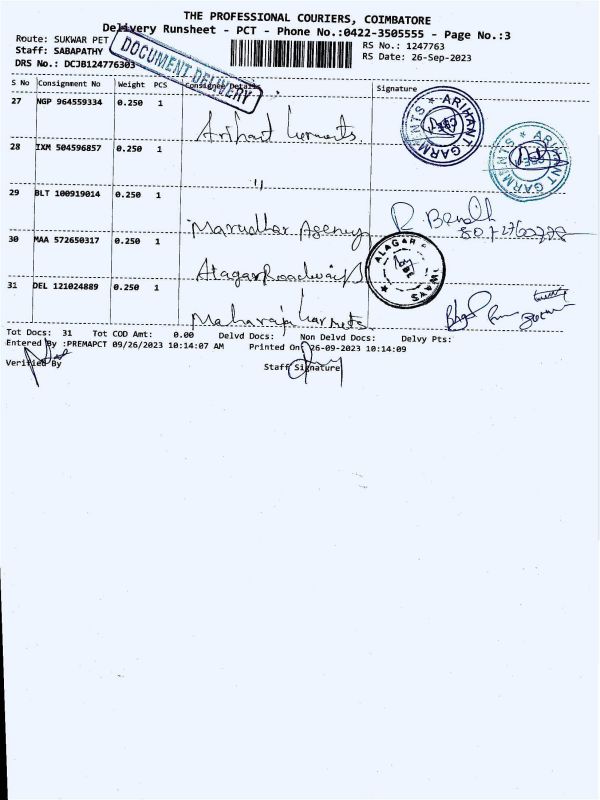 THE PROFESSIONAL COURIERS, COIMBATORE
Delivery Runsheet - PCT - Phone No.:0422-3505555 - Page No.:3
Route: SUKWAR PET
RS No.: 1247763
Staff: SABAPATHY
RS Date: 26-Sep-2023
DRS No.: DCJB124776303
DOCUMENT DELIVERY
S No Consignment No Weight PCS Consignee Details Signature
27 NGP 964559334 0.250 1 Arihant Garments
ARIHANT GARMENTS
28 IXM 504596857 0.250 1 "
ARIHANT GARMENTS
29 BLT 100919014 0.250 1 Marudhar Agency
30 MAA 572650317 0.250 1 Alagar Roadways
31 DEL 121024889 0.250 1 Maharaja Garments
Tot Docs: 31 Tot COD Amt: 0.00 Delvd Docs: Non Delvd Docs: Delvy Pts:
Entered By :PREMAPCT 09/26/2023 10:14:07 AM Printed On 26-09-2023 10:14:09
Verified By Staff Signature